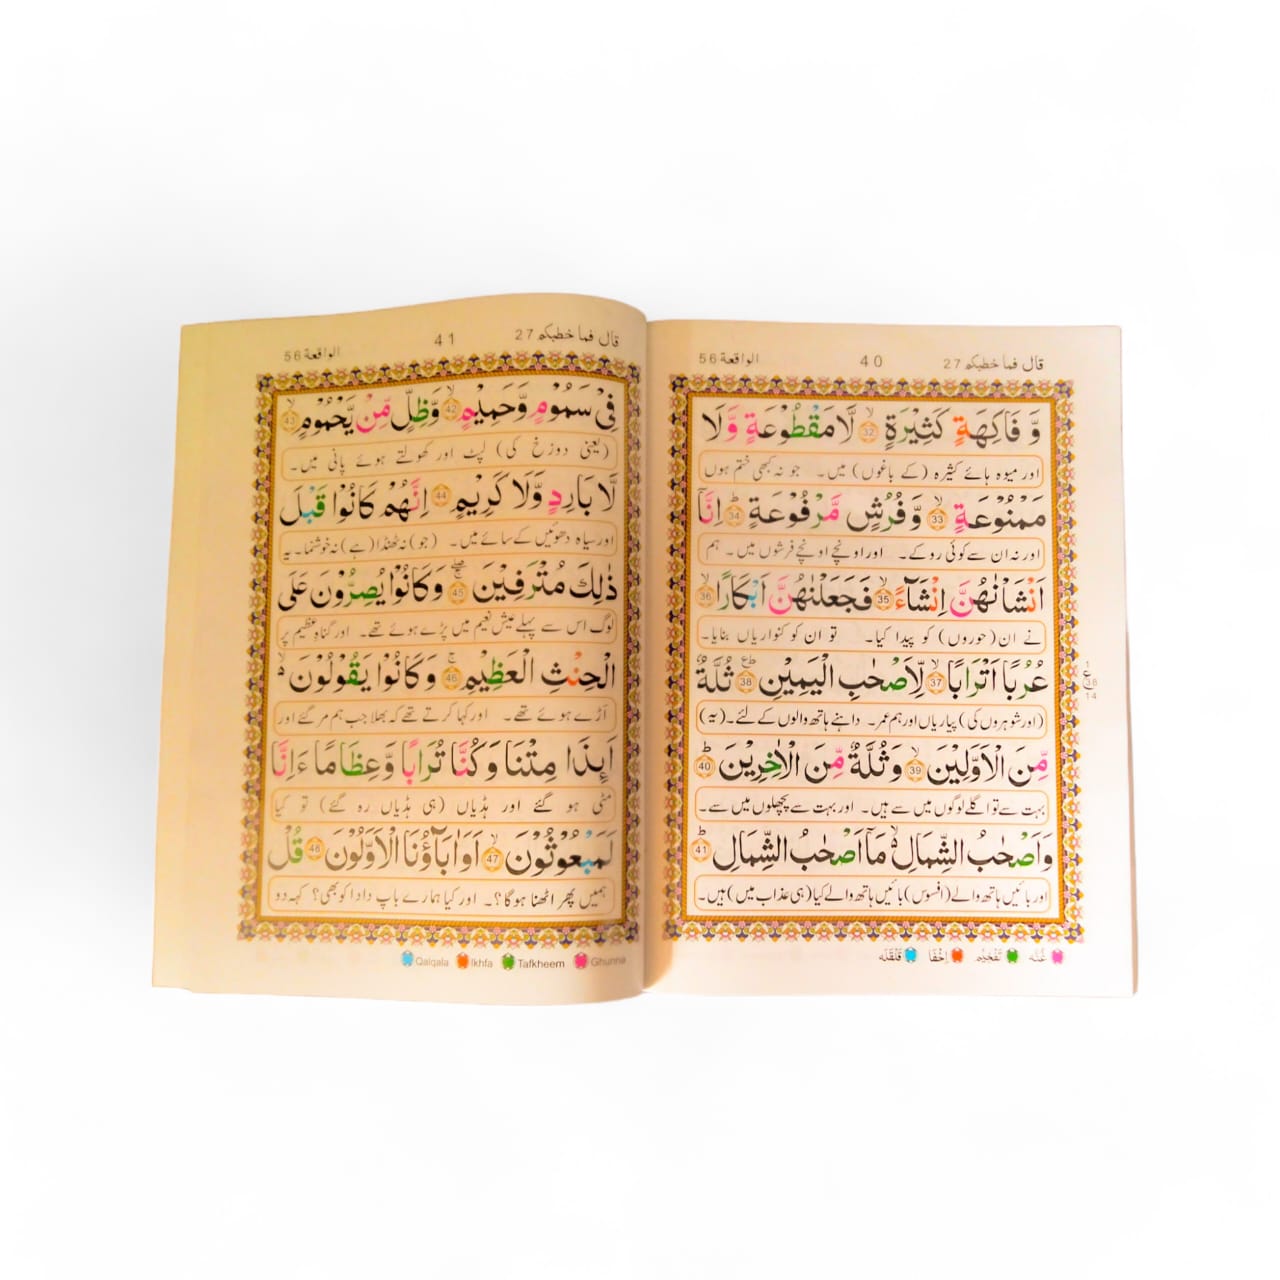 قال فما خطبکم 27 40 الواقعة 56
وَّ فَاكِهَةٍ كَثِيْرَةٍ ۙ32 لَّا مَقْطُوْعَةٍ وَّ لَا
اور میوہ ہائے کثیرہ (کے باغوں) میں۔ جو نہ کبھی ختم ہوں
مَمْنُوْعَةٍ ۙ33 وَّ فُرُشٍ مَّرْفُوْعَةٍ ؕ34 اِنَّاۤ
اور نہ ان سے کوئی روکے۔ اور اونچے اونچے فرشوں میں۔ ہم
اَنْشَاْنٰهُنَّ اِنْشَآءً ۙ35 فَجَعَلْنٰهُنَّ اَبْكَارًا ۙ36
نے ان (حوروں) کو پیدا کیا۔ تو ان کو کنواریاں بنایا۔
عُرُبًا اَتْرَابًا ۙ37 لِّاَصْحٰبِ الْيَمِيْنِ ؕع38 ثُلَّةٌ
(اور شوہروں کی) پیاریاں اور ہم عمر۔ داہنے ہاتھ والوں کے لئے۔ (یہ)
1
ع
38
14
مِّنَ الْاَوَّلِيْنَ ۙ39 وَ ثُلَّةٌ مِّنَ الْاٰخِرِيْنَ ؕ40
بہت سے تو اگلے لوگوں میں سے ہیں۔ اور بہت سے پچھلوں میں سے۔
وَ اَصْحٰبُ الشِّمَالِ ۙ مَاۤ اَصْحٰبُ الشِّمَالِ ؕ41
اور بائیں ہاتھ والے (افسوس) بائیں ہاتھ والے کیا (ہی عذاب میں) ہیں۔
غُنَّه تَفْخِيْم اِخْفَا قَلْقَلَه
قال فما خطبکم 27 41 الواقعة 56
فِيْ سَمُوْمٍ وَّ حَمِيْمٍ ۙ42 وَّ ظِلٍّ مِّنْ يَّحْمُوْمٍ ۙ43
(یعنی دوزخ کی) لپٹ اور کھولتے ہوئے پانی میں۔
لَّا بَارِدٍ وَّ لَا كَرِيْمٍ 44 اِنَّهُمْ كَانُوْا قَبْلَ
اور سیاہ دھوئیں کے سائے میں۔ (جو) نہ ٹھنڈا (ہے) نہ خوشنما۔ یہ
ذٰلِكَ مُتْرَفِيْنَ 45 وَ كَانُوْا يُصِرُّوْنَ عَلَى
لوگ اس سے پہلے عیش نعیم میں پڑے ہوئے تھے۔ اور گناہ عظیم پر
الْحِنْثِ الْعَظِيْمِ ۚ46 وَ كَانُوْا يَقُوْلُوْنَ ۙ۬
اَڑے ہوئے تھے۔ اور کہا کرتے تھے کہ بھلا جب ہم مر گئے اور
اَىِٕذَا مِتْنَا وَ كُنَّا تُرَابًا وَّ عِظَامًا ءَاِنَّا
مٹی ہو گئے اور ہڈیاں (ہی ہڈیاں رہ گئے) تو کیا
لَمَبْعُوْثُوْنَ ۙ47 اَوَ اٰبَآؤُنَا الْاَوَّلُوْنَ 48 قُلْ
ہمیں پھر اٹھنا ہوگا؟۔ اور کیا ہمارے باپ دادا کو بھی؟ کہہ دو
Qalqala Ikhfa Tafkheem Ghunna